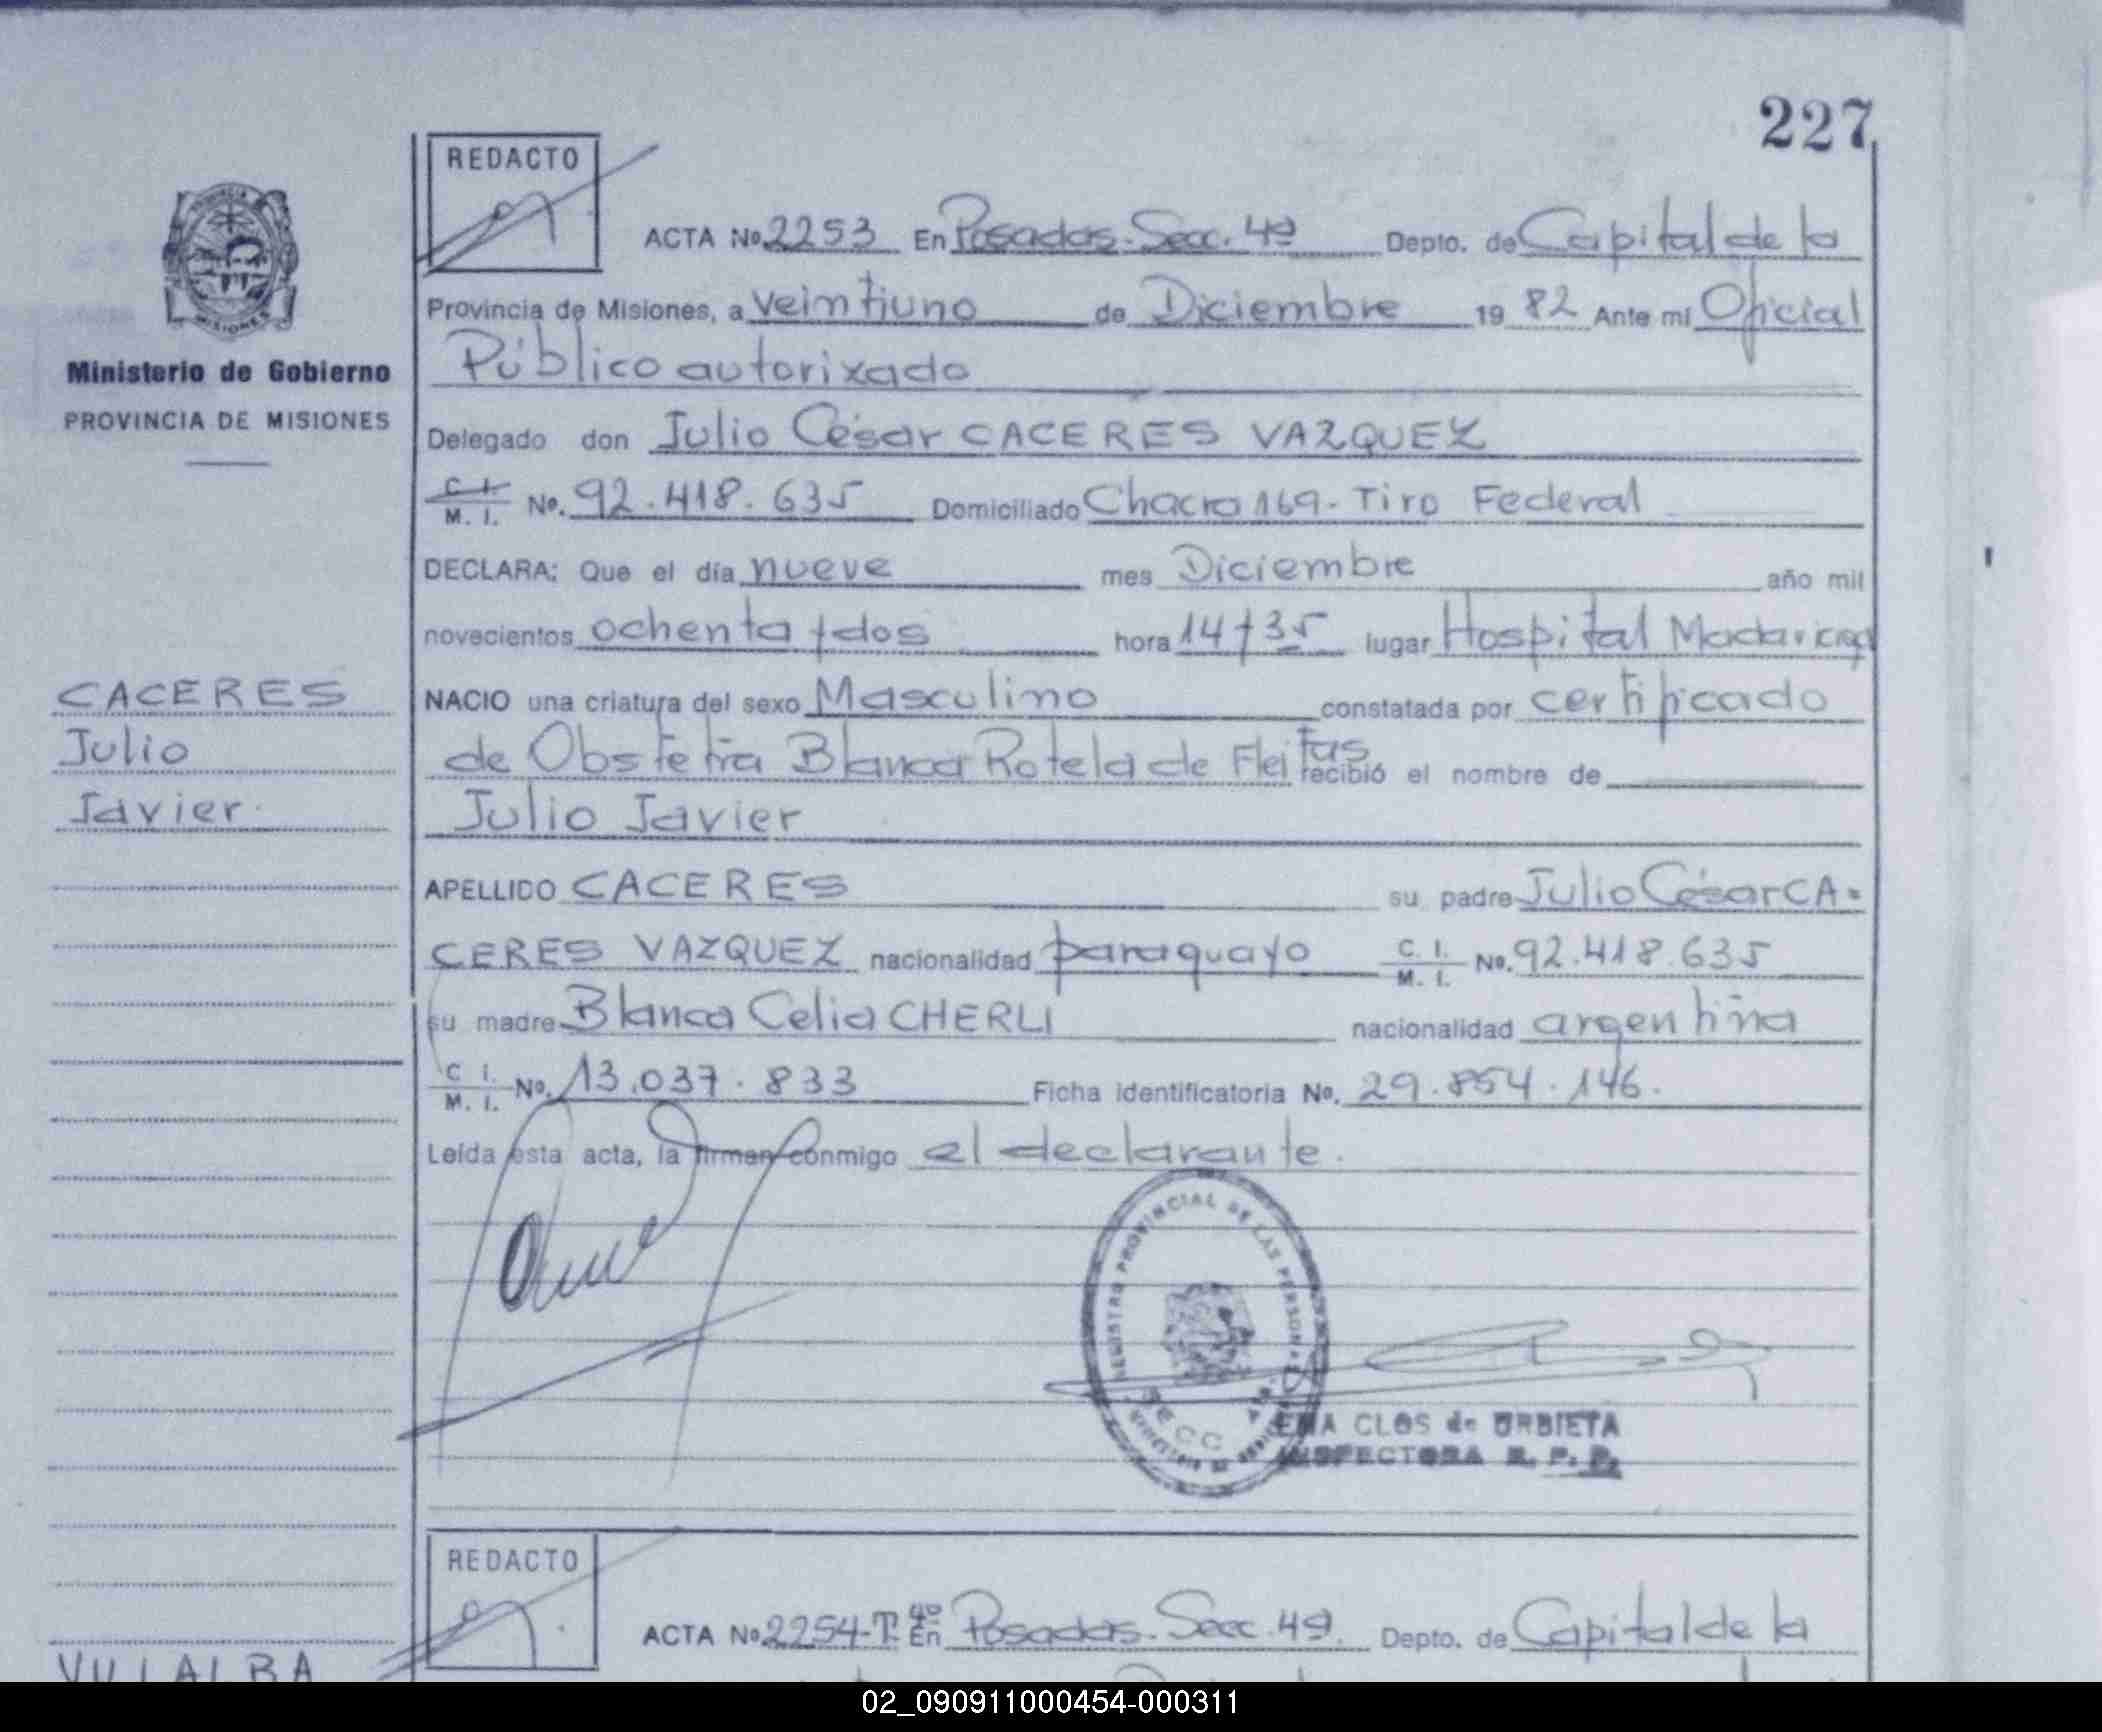 227
REDACTO
ACTA No 2253 En Posadas. Secc. 4ª Depto. de Capital de la
Provincia de Misiones, a veintiuno de Diciembre 19 82 Ante mi Oficial
Público autorixado
Delegado don Julio César CACERES VAZQUEZ
C. I. M. I. No. 92.418.635 Domiciliado Chacra 169 - Tiro Federal
DECLARA: Que el día nueve mes Diciembre año mil
novecientos ochenta y dos hora 14 y 35 lugar Hospital Madariaga
NACIO una criatura del sexo Masculino constatada por certificado
de Obstetra Blanca Rotela de Fleitas recibió el nombre de
Julio Javier
APELLIDO CACERES su padre Julio César CA-
CERES VAZQUEZ nacionalidad paraguayo C. I. M. I. No. 92.418.635
su madre Blanca Celia CHERLI nacionalidad argentina
C I. M. I. No. 13.037.833 Ficha identificatoria No. 29.854.146.
Leída esta acta, la firman conmigo el declarante.
REGISTRO PROVINCIAL DE LAS PERSONAS
SECC 4ª
EMA CLOS de URBIETA
INSPECTORA R. P. P.
Ministerio de Gobierno
PROVINCIA DE MISIONES
CACERES
Julio
Javier
REDACTO
ACTA No 2254-Tº 4º En Posadas. Secc. 4ª. Depto. de Capital de la
VILLALBA
02_090911000454-000311